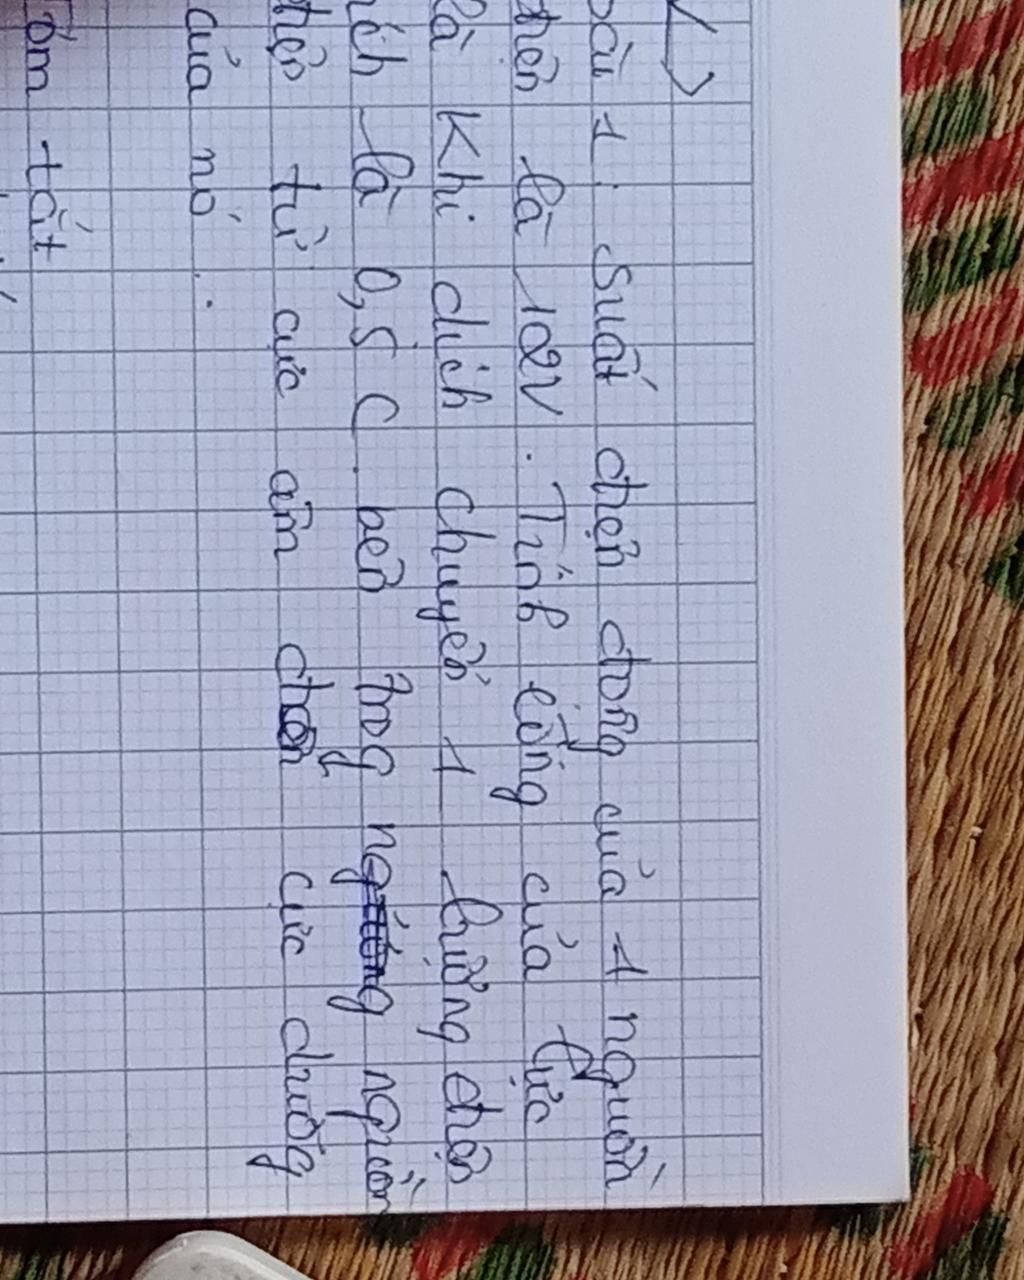 Bài 1: Suất điện động của 1 nguồn
điện là 12V. Tính công của lực
lạ khi dịch chuyển 1 lượng điện
tích là 0,5 C bên trong nguồn
điện từ cực âm đến cực dương
của nó.
Tóm tắt